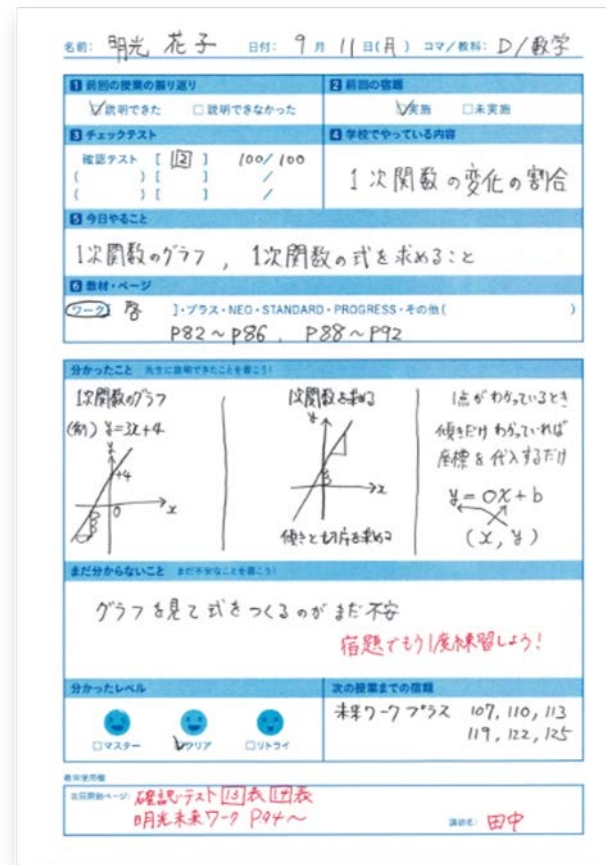 名前: 明光 花子 日付: 9月 11日(月) コマ/教科: D/数学
1 前回の授業の振り返り
☑説明できた □説明できなかった
2 前回の宿題
☑実施 □未実施
3 チェックテスト
確認テスト [ 12 ] 100/100
( ) [ ] /
( ) [ ] /
4 学校でやっている内容
1次関数の変化の割合
5 今日やること
1次関数のグラフ, 1次関数の式を求めること
6 教材・ページ
ワーク[ 啓 ]・プラス・NEO・STANDARD・PROGRESS・その他( )
P82~P86, P88~P92
分かったこと 先生に説明できたことを書こう!
1次関数のグラフ
(例) y=3x+4
y
+4
0
x
1次関数を求める
y
x
傾きと切片を求める
1点がわかっているとき
傾きだけわかっていれば
座標を代入するだけ
y=○x+b
(x, y)
まだ分からないこと まだ不安なことを書こう!
グラフを見て式をつくるのがまだ不安
宿題でもう1度練習しよう!
分かったレベル
□マスター ☑クリア □リトライ
次の授業までの宿題
未来ワークプラス 107, 110, 113
119, 122, 125
教室使用欄
次回開始ページ: 確認テスト 13表 14表
明光未来ワーク P94~
講師名: 田中